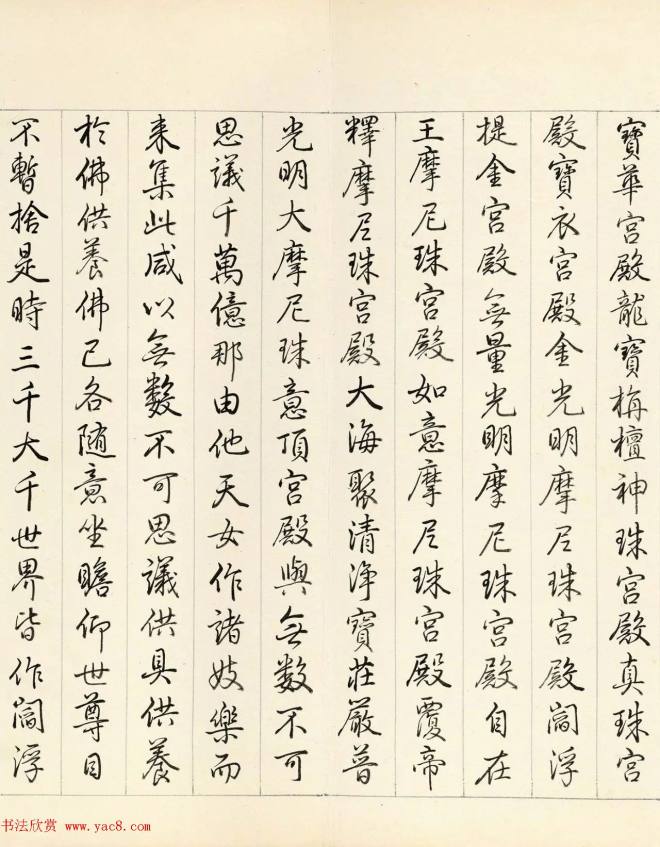 寶華宮殿龍寶栴檀神珠宮殿真珠宮
殿寶衣宮殿金光明摩尼珠宮殿閻浮
提金宮殿無量光明摩尼珠宮殿自在
王摩尼珠宮殿如意摩尼珠宮殿覆帝
釋摩尼珠宮殿大海聚清淨寶莊嚴普
光明大摩尼珠意頂宮殿與無数不可
思議千萬億那由他天女作諸妓樂而
来集此咸以無数不可思議供具供養
於佛供養佛已各随意坐瞻仰世尊目
不暫捨是時三千大千世界皆作閻浮
书法欣赏 www.yac8.com